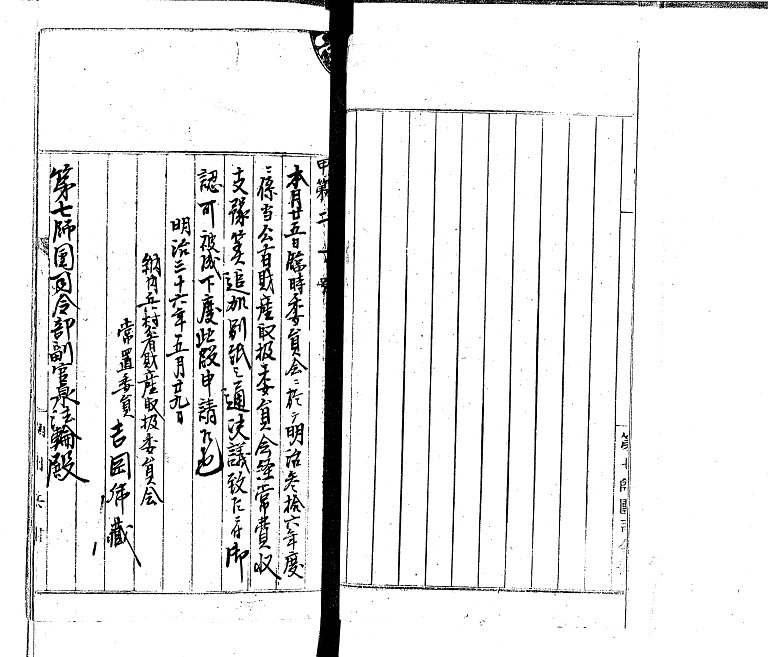 甲第二一号
本月廿五日臨時委員会ニ於テ明治参拾六年度
ニ係ル当公有財産取扱委員会経常費収
支予算追加別紙之通決議致候ニ付御
認可被成下度此段申請候也
明治三十六年五月廿九日
兵村公有財産取扱委員会
常置委員 吉田 蔵
第七師団司令部副官泉法輪殿
第七師團司令